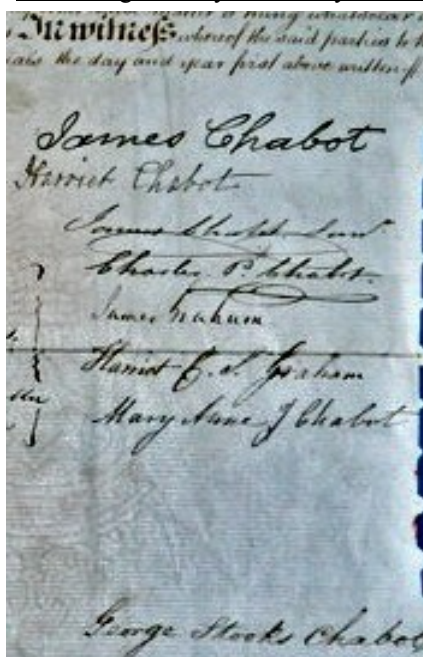 In witness whereof the said parties to
the day and year first above written
James Chabot
Harriet Chabot
James Chabot Junr
Charles P. Chabot
James Graham
Harriet E. S. Graham
Mary Anne J Chabot
George Stocks Chabot